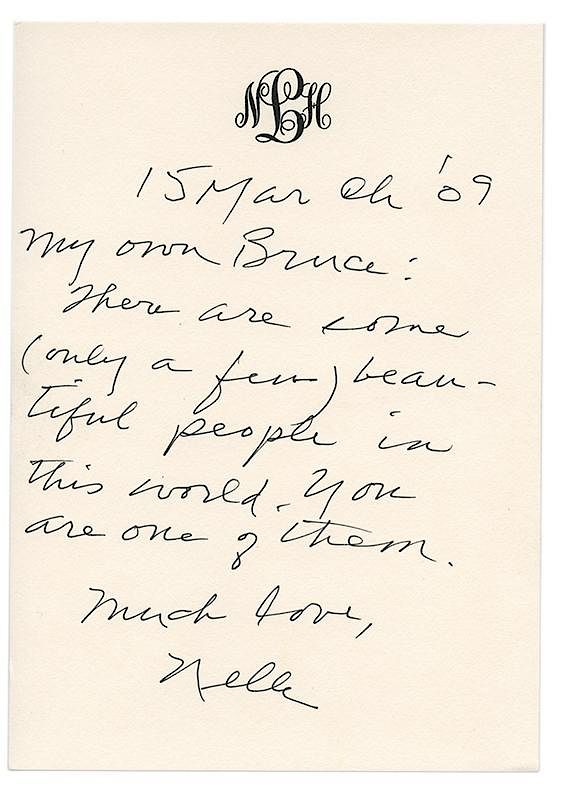 NLH
15 March '09
My own Bruce:
There are some
(only a few) beau-
tiful people in
this world. You
are one of them.
Much love,
Nelle